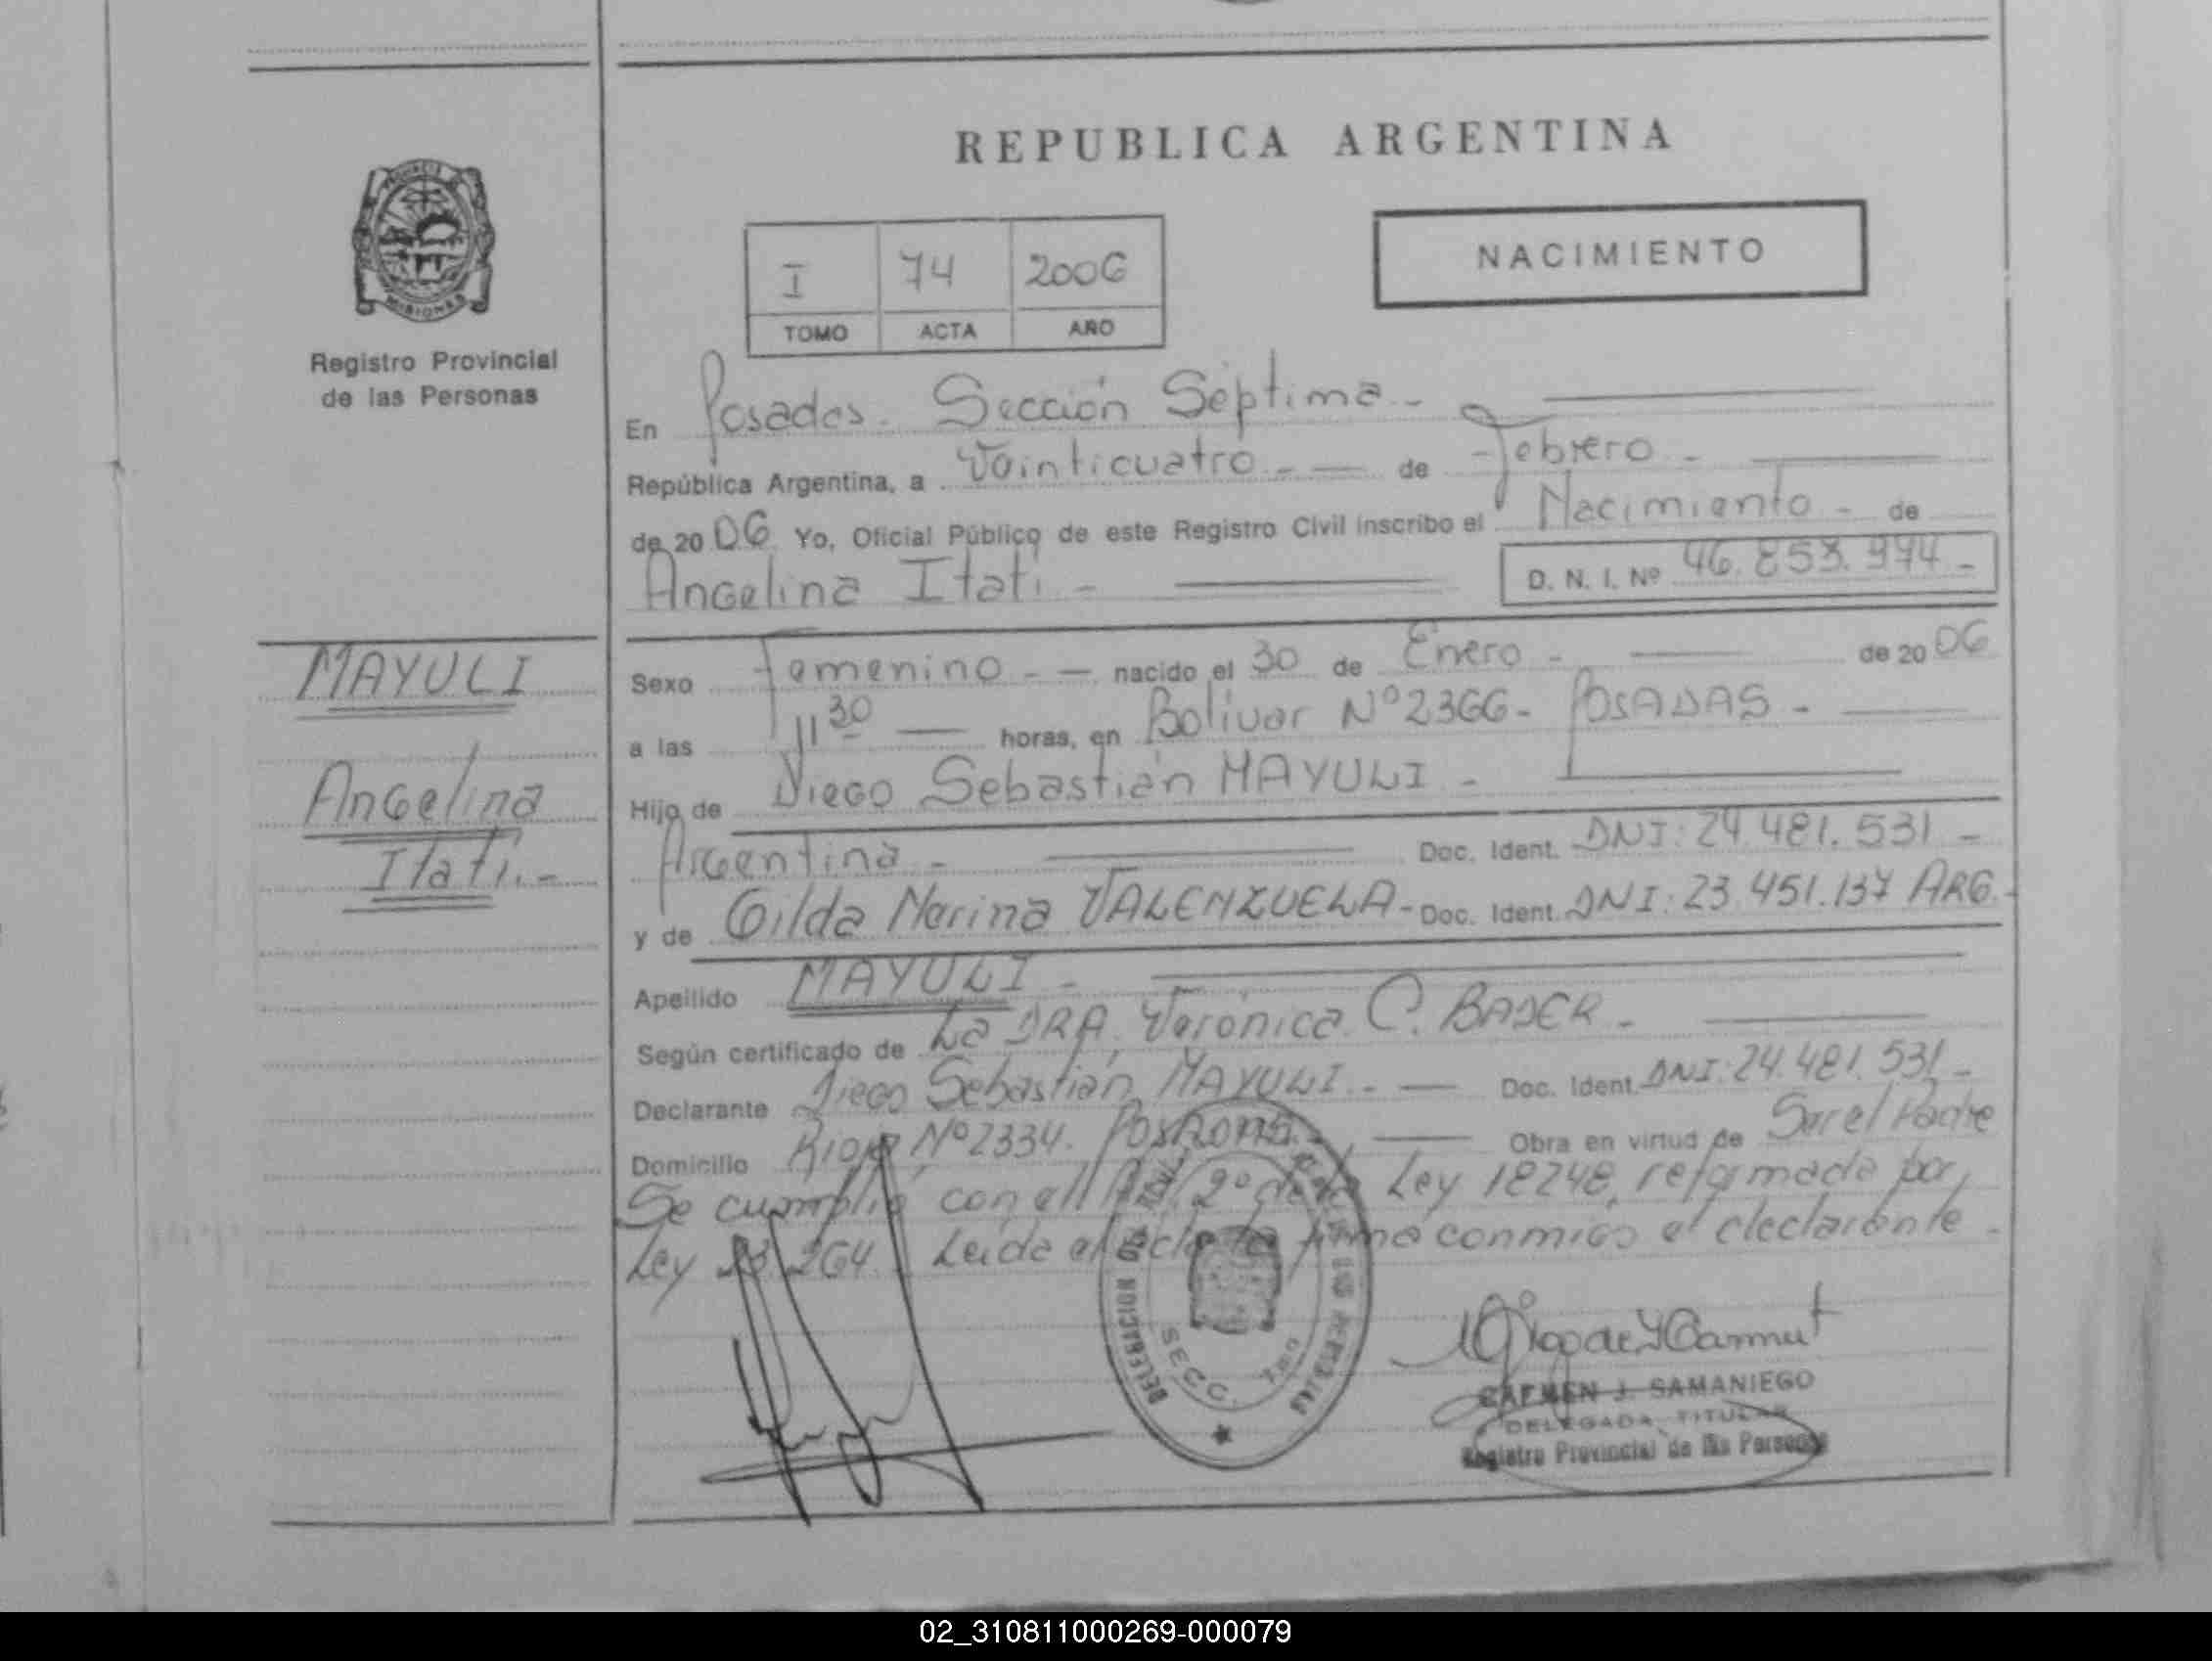 REPUBLICA ARGENTINA
PROVINCIA
MISIONES
Registro Provincial
de las Personas
NACIMIENTO
I 74 2006
TOMO ACTA AÑO
En Posadas. Sección Séptima -
República Argentina, a Veinticuatro - de Febrero -
de 2006 Yo, Oficial Público de este Registro Civil inscribo el Nacimiento - de
Angelina Itatí - D. N. I. Nº 46.853.974 -
MAYULI
Angelina
Itatí. -
Sexo Femenino - nacido el 30 de Enero - de 2006
a las 11 30 horas, en Bolivar Nº 2366 - POSADAS -
Hijo de Diego Sebastián MAYULI -
Argentina - Doc. Ident. DNI: 24.481.531 -
y de Gilda Marina VALENZUELA - Doc. Ident. DNI: 23.451.137 ARG. -
Apellido MAYULI -
Según certificado de La DRA. Verónica C. BADER -
Declarante Diego Sebastián MAYULI. - Doc. Ident. DNI: 24.481.531 -
Domicilio Rioja Nº 2334. POSADAS. - Obra en virtud de Ser el Padre
Se cumplió con el Art. 2º de la Ley 18248, reformada por
Ley 23.264. Leída el acta la firma conmigo el declarante -
DELEGACION SECC. 7
CARMEN J. SAMANIEGO
DELEGADA TITULAR
Registro Provincial de las Personas
02_310811000269-000079